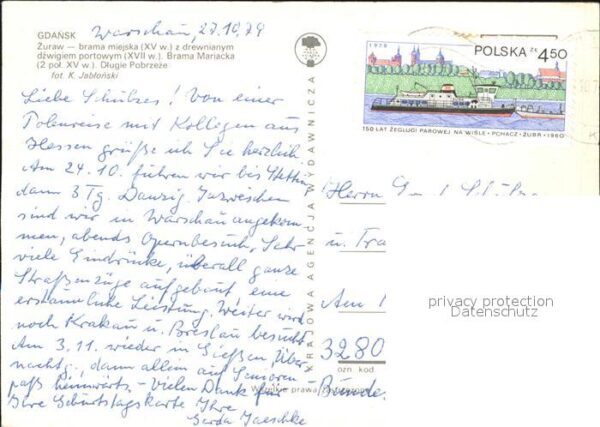 GDAŃSK Warschau, 27.10.79
Żuraw — brama miejska (XV w.) z drewnianym
dźwigiem portowym (XVII w.). Brama Mariacka
(2 poł. XV w.). Długie Pobrzeże
fot. K. Jabłoński
Liebe Schulzes! Von einer
Polenreise mit Kollegen aus
Hessen grüße ich Sie herzlich.
Am 24.10. fuhren wir bis Stettin,
dann 3 Tg. Danzig. Inzwischen
sind wir in Warschau angekom-
men, abends Opernbesuch. Sehr
viele Eindrücke, überall ganze
Straßenzüge aufgebaut, eine
erstaunliche Leistung. Weiter wird
noch Krakau u. Breslau besucht.
Am 3.11. wieder in Gießen, Über-
nachtg., dann allein auf Senioren-
paß heimwärts. - Vielen Dank für
Ihre Geburtstagskarte Ihre
Gerda Jaeschke
KRAJOWA AGENCJA WYDAWNICZA
1979
POLSKA zł 4,50
150 LAT ŻEGLUGI PAROWEJ NA WIŚLE • PCHACZ • ŻUBR • 1960
Herrn
u.
Am
3280
ozn. kod.
Bünde
Wszelkie prawa
privacy protection
Datenschutz